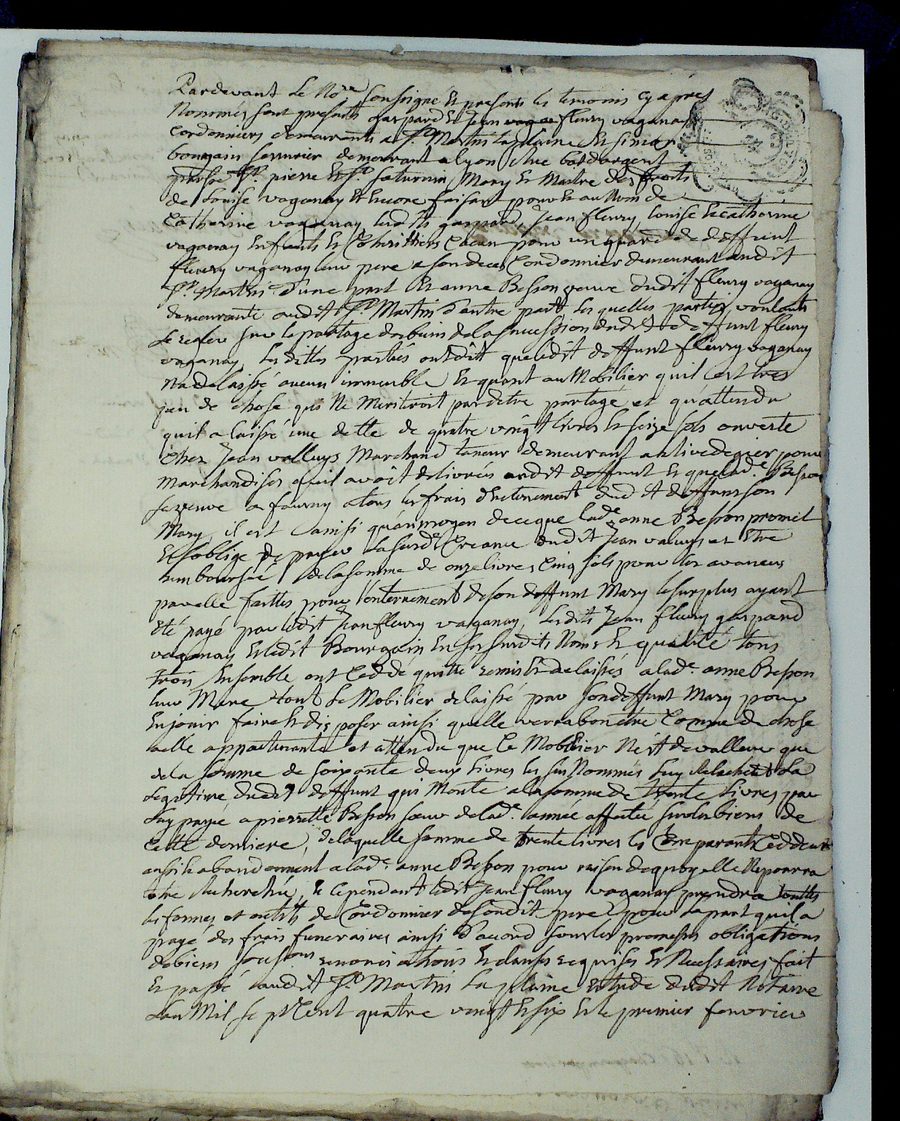 Pardevant Le No.re Soussigné Et presents les temoins cy après
Nommés sont presents gaspard Et Jean fleury vaganay
Cordonniers demeurants a St. Martin La plaine Et simar
bourgain serrurier demeurant a lyon
pierre Et St. saturnin, Mary Et Maitre des droits
de Louise vaganay Et Encore faisant pour Et au Nom de
Catherine vaganay Lesdits gaspard, Jean fleury, louise Et catherine
vaganay Enfants Et Cohéritiers Chacun pour un quart dud. deffunt
fleury vaganay leur pere a son deces Cordonnier demeurant audit
St. Martin d'une part Et anne Besson veuve dudit fleury vaganay
demeurante audit St. Martin d'autre part Lesquelles parties voulants
se regler sur le partage des biens de la succession dudit deffunt fleury
vaganay, Lesdittes parties ont dit que ledit deffunt fleury vaganay
N'a delaissé aucun immeuble Et quant au Mobilier qu'il est tres
peu de chose qui Ne Meritoit pas detre partagé et qu'attendu
quil a laissé une dette de quatre vingt livres Et seize sols ouverte
Chez Jean valluys Marchand taneur demeurant a rivedegier pour
Marchandises quil avoit delivrés audit deffunt Et que lad.e Besson
sa veuve a fourny a tous les frais d'enterrement dudit deffunt son
Mary, il est ainsi qu'au moyen de ce que lad.e anne Besson promet
Et s'oblige de payer La susd.e Creance dudit Jean valluys et Etre
remboursée de la somme de onze livres Cinq sols pour les avances
par elle faittes pour l'enterrement de son deffunt Mary le surplus ayant
Eté payé par ledit Jean fleury vaganay, Lesdits Jean fleury gaspard
vaganay Et ledit Bourgain En ses susdits Noms Et qualité tous
trois Ensemble ont Ceddé quitté remis Et delaissés a lad.e anne Besson
leur Mere tout Le Mobilier delaissé par son deffunt Mary pour
En jouir faire Et disposer ainsi quelle verra bon etre Comme de chose
a elle appartenante et attendu que Ce Mobilier N'est de valleur que
de la somme de soixante deux livres les susNommés Luy La
Legitime dudit deffunt qui Monte a la somme de trente Livres par
Luy payé a pierrette Besson soeur de lad.e année affectée sur les biens de
Cette derniere, de laquelle somme de trente livres les Comparants Ceddent
aussi Et abandonnent a lad.e anne Besson pour raison de quoy elle Ne pourra
etre Recherchée, Et Cependant ledit Jean fleury vaganay prendra touttes
les formes et outils de Cordonnier de sondit pere pour la part quil a
payé des frais funeraires ainsi D'acord sous les promesses obligations
de biens soumissions renonciations Et clauses requises Et Necessaires, fait
Et passé audit St. Martin La plaine Etude dudit Notaire
L'an Mil sept Cent quatre vingt Et six Et le premier fevrier